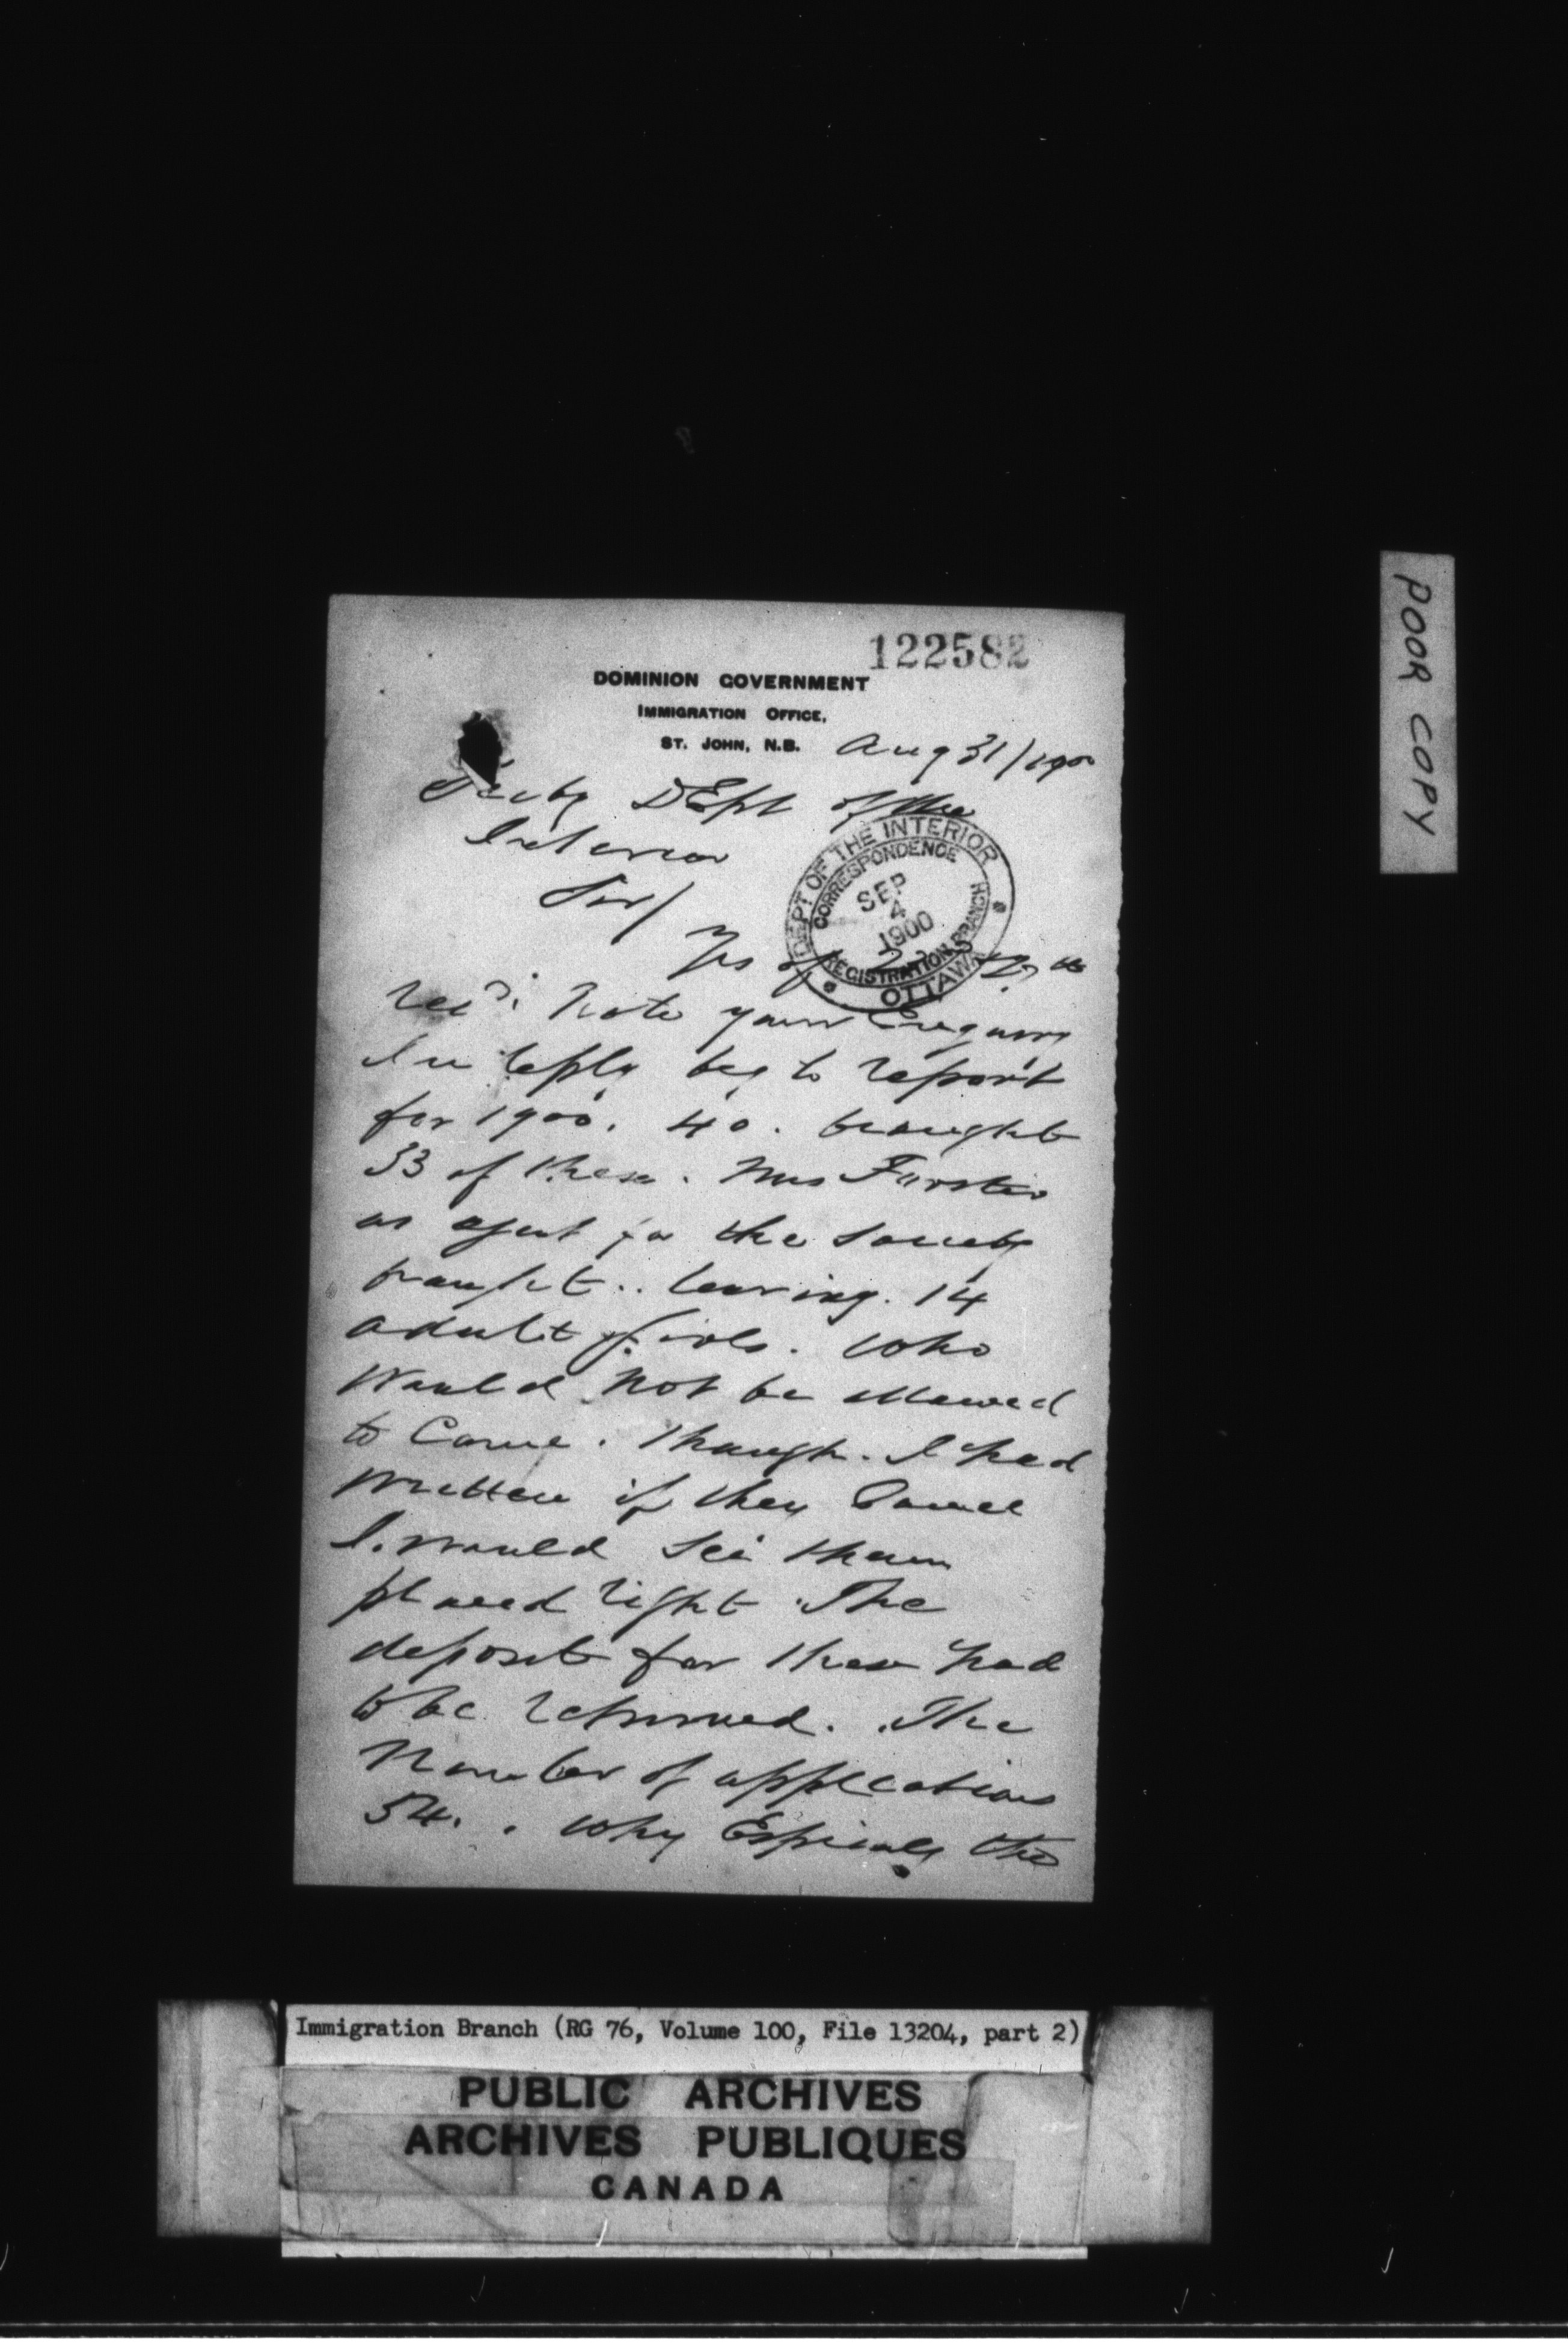 122582
DOMINION GOVERNMENT
IMMIGRATION OFFICE,
ST. JOHN, N.B. Aug 31/1900
Secty DEpt of the
Interior
Sir/
DEPT OF THE INTERIOR
CORRESPONDENCE
SEP
4
1900
REGISTRATION BRANCH
OTTAWA
Yrs of
Recd. Note your Enquiry
In reply beg to report
for 1900. 40. brought
33 of these. Mrs Forster
as agent for the Society
brought.. leaving. 14
adult girls. who
Would Not be allowed
to Come. though. I had
Written if they Came
I. would see them
placed right. The
deposit for these had
to be returned. The
Number of applications
54. . Why the
POOR COPY
Immigration Branch (RG 76, Volume 100, File 13204, part 2)
PUBLIC ARCHIVES
ARCHIVES PUBLIQUES
CANADA